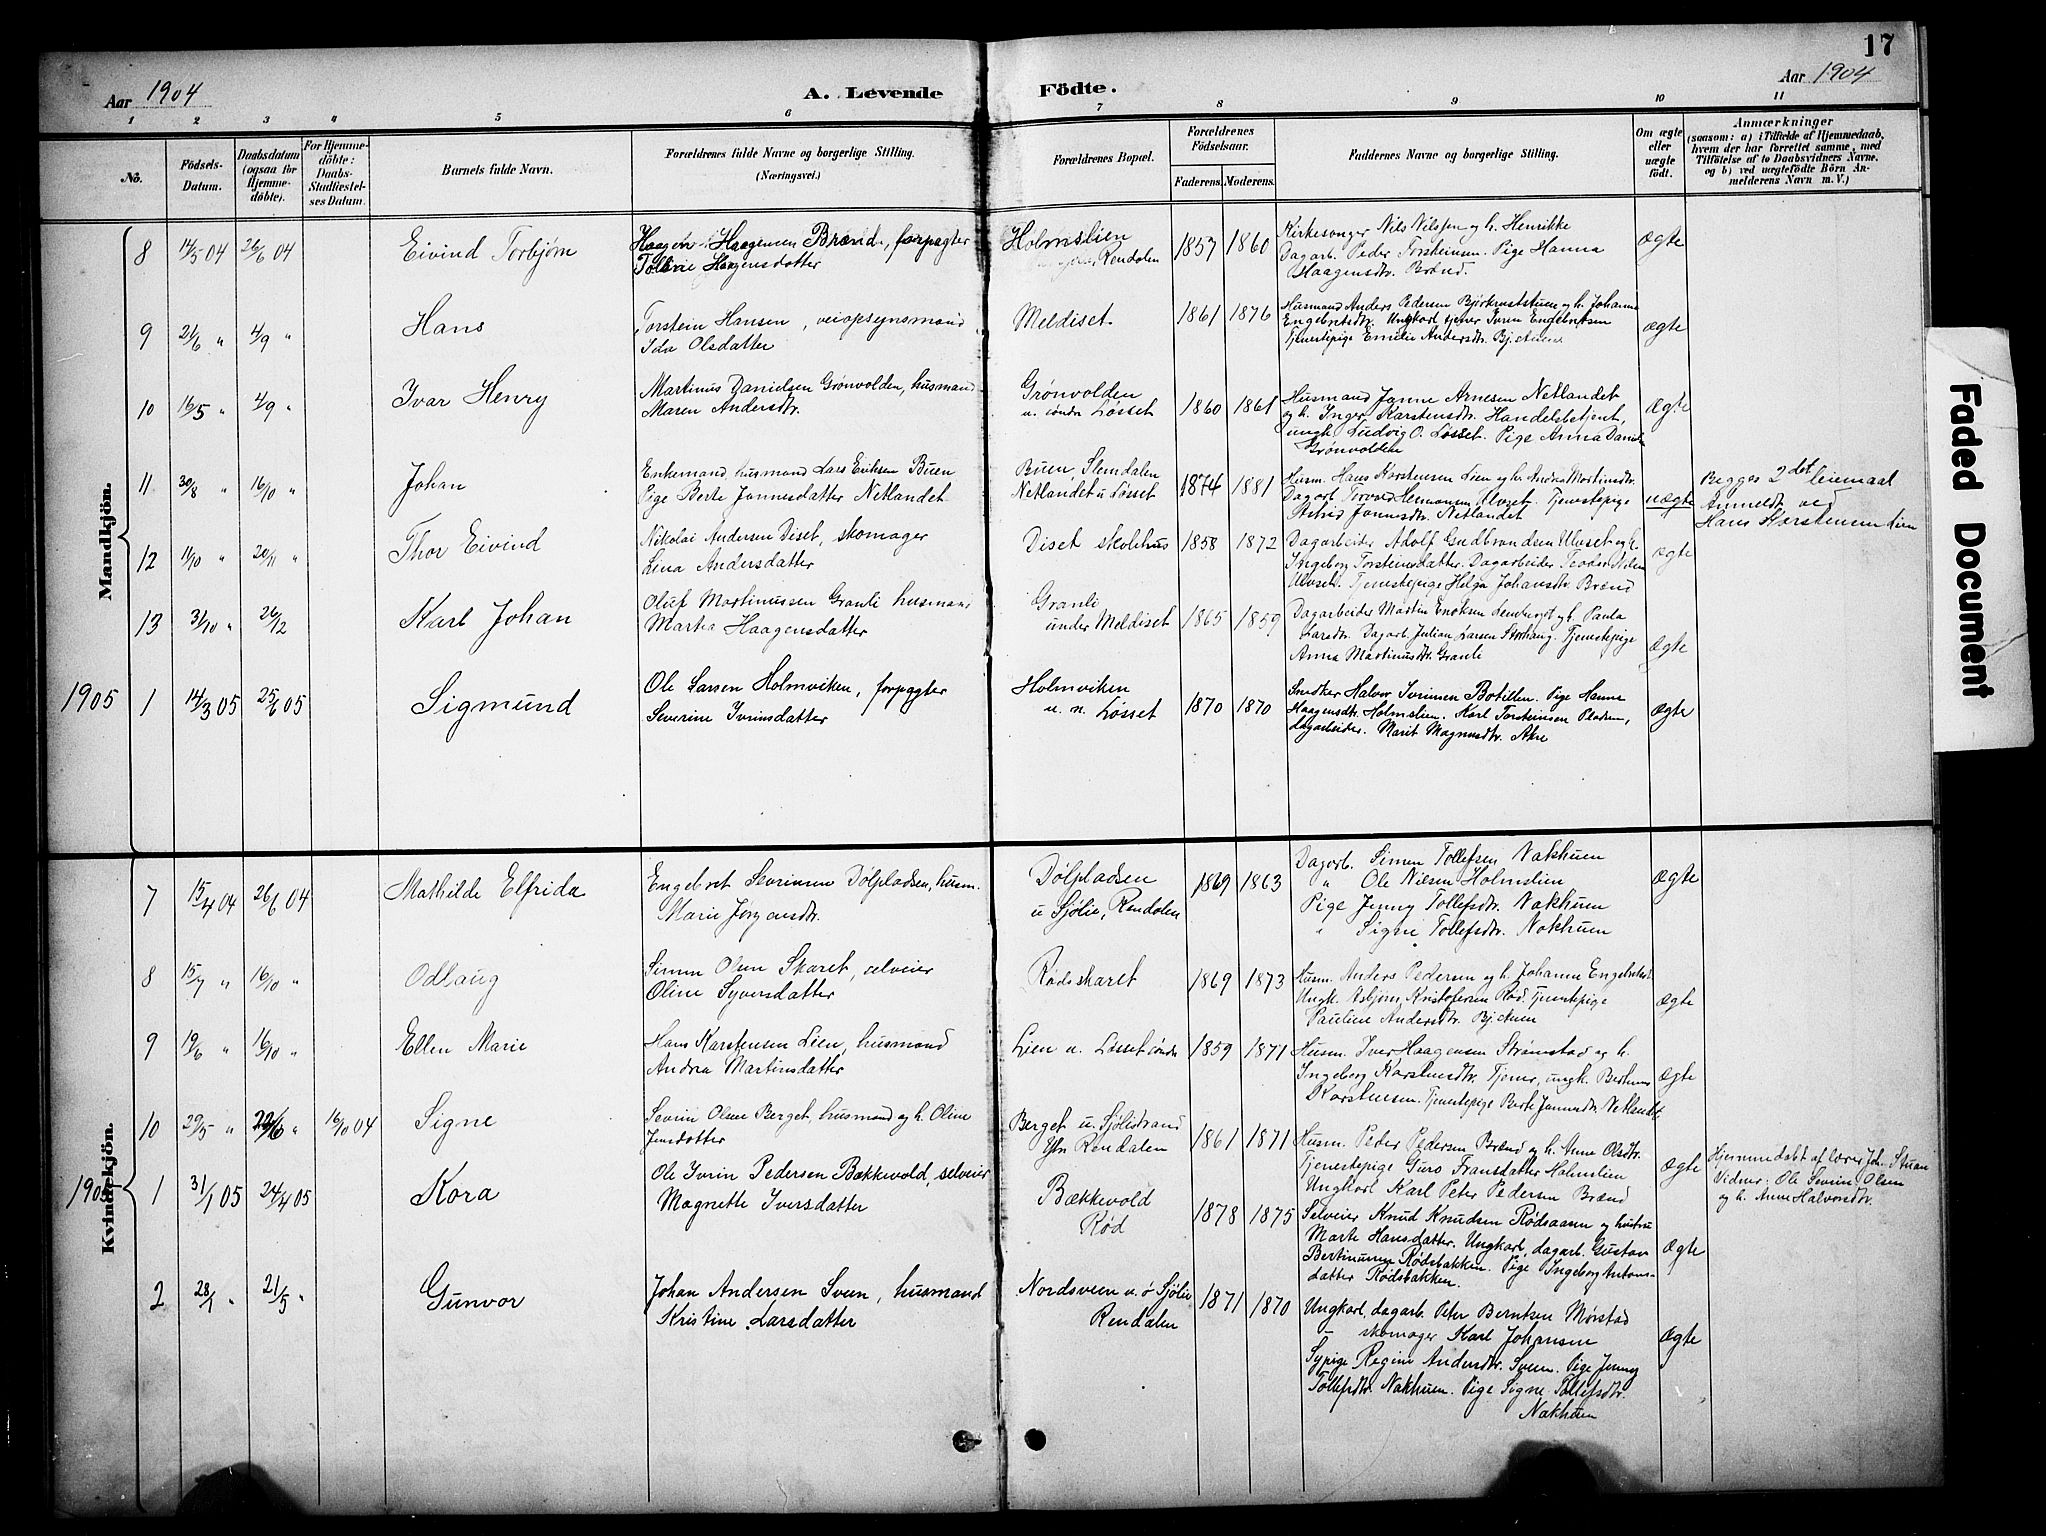 17
Aar 1904
A. Levende Födte.
Aar 1904
1 2 3 4 5 6 7 8 9 10 11
No.
Födsels-Datum.
Daabsdatum (ogsaa for Hjemmedöbte).
For Hjemmedöbte: Daabs-Stadfæstelses Datum.
Barnets fulde Navn.
Forældrenes fulde Navne og borgerlige Stilling.
(Næringsvei.)
Forældrenes Bopæl.
Forældrenes Födselsaar.
Faderens. Moderens.
Faddernes Navne og borgerlige Stilling.
Om ægte eller uægte födt.
Anmærkninger
(saasom: a) i Tilfælde af Hjemmedaab, hvem der har forrettet samme, med Tilföielse af to Daabsvidners Navne, og b) ved uægtefödte Börn Anmelderens Navn m. V.)
Mandkjön.
8 14/5 04 26/6 04 Eivind Torbjørn
Haagen Haagensen Brænd, forpagter
Haagensdatter
Holmslien
Rendalen
1857 1860
Kirkesanger Nils Nilssen og h. Henrikke
Dagarb. Peder Torsteinsen. Pige Hanna
Haagensdtr. Brænd.
ægte
9 21/6 " 4/9 " Hans
Torstein Hansen, veiopsynsmand
Ida Olsdatter
Meldiset
1861 1876
Husmand Anders Pedersen og h. Johanne
Engebretsdtr. Ungkarl tjener Iven Engebretsen
Tjenestepige Emilie Andersdtr. Bj.stuen
ægte
10 16/5 " 4/9 " Ivar Henry
Martinus Danielsen Grønvolden, husmand
Maren Andersdtr.
Grønvolden
u. søndre Løsset
1860 1861
Husmand Janne Arnesen Netlandet
og h. Inger Karstensdtr. Handelsbetjent,
ungk. Ludvig O. Løsset. Pige Anna Daniels
Grønvolden
ægte
11 30/8 " 16/10 " Johan
Enkemand, husmand Lars Eriksen Buen
Pige Berte Jannesdatter Netlandet
Buen, Slemdalen
Netlandet u. Løsset
1874 1881
Husm. Hans Karstensen Lien og h. Andrea Martinsdtr.
Dagarb. Torvald Hermansen Ulvset. Tjenestepige
Astrid Jannesdtr. Netlandet
uægte
Begges 2det leiemaal
Anmeldt ved
Hans Karstensen Lien
12 11/10 " 20/11 " Thor Eivind
Nikolai Andersen Diset, skomager
Lina Andersdatter
Diset skolehus
1858 1872
Dagarbeider Adolf Gudbrandsen Ulvset og h.
Ingeborg Torsteinsdatter. Dagarbeider Teodor Nilsen
Ulvset. Tjenestepige Helga Johansdtr. Brænd
ægte
13 31/10 " 26/12 Karl Johan
Oluf Martinussen Granli husmand
Marta Haagensdatter
Granli
under Meldiset
1865 1859
Dagarbeider Martin Enoksen Lomberget og h. Paula
Larsdtr. Dagarb. Julian Larsen Storhaug. Tjenestepige
Anna Martinusdtr. Granli
ægte
1905 1 14/3 05 25/6 05 Sigmund
Ole Larsen Holmviken, forpagter
Severine Iverinsdatter
Holmviken
u. n. Løsset
1870 1870
Snedker Halvor Iverinsen Botillen. Pige Hanna
Haagensdtr. Holmslien. Karl Torsteinsen Pladsen,
dagarbeider. Marit Magnusdtr. Akre
ægte
Kvindekjön.
7 15/4 04 26/6 04 Mathilde Elfrida
Engebret Severinsen Dølpladsen, husm.
Marie Jørgensdtr.
Dølpladsen
u Sjølie, Rendalen
1869 1863
Dagarb. Simen Tollefsen Nakhuen
" Ole Nilsen Holmslien
Pige Jenny Tollefsdtr. Nakhuen
" Signe Tollefsdtr. Nakhuen
ægte
8 15/7 " 16/10 " Odlaug
Simen Olsen Skaret, selveier
Oline Syversdatter
Rødsskaret
1869 1873
Husm. Anders Pedersen og h. Johanne Engebretsd.
Ungk. Asbjørn Kristofersen Rød. Tjenestepige
Pauline Andersdtr. Bj.stuen
ægte
9 19/6 " 16/10 " Ellen Marie
Hans Karstensen Lien, husmand
Andrea Martinsdatter
Lien u. Løsset søndre
1859 1871
Husm. Iver Haagensen Strømstad og h.
Ingeborg Karstensdtr. Tjener, ungk. Berthinus
Karstensen. Tjenestepige Berte Jannesdtr. Netlandet
ægte
10 29/5 " 22/6 " 16/10 04 Signe
Severin Olsen Berget, husmand og h. Oline
Jensdatter
Berget u. Sjølistrand
Ytre Rendalen
1861 1871
Husm. Peder Pedersen Brænd og h. Anne Olsdtr.
Tjenestepige Guro Fransdatter Holmslien
Ungkarl Karl Peter Pedersen Brænd
ægte
Hjemmedøbt af lærer Joh. Stuan
Vidner: Ole Severin Olsen
og h. Anne Halvorsdtr.
1905 1 31/1 05 24/4 05 Kora
Ole Iverin Pedersen Bækkevold, selveier
Magnette Iversdatter
Bækkevold
Rød
1878 1875
Selveier Knud Knudsen Rødsaasen og hustru
Marte Hansdatter. Ungkarl, dagarb. Gustav
Bertinusen Rødsbakken. Pige Ingeborg Antons-
datter Rødsbakken.
ægte
2 28/1 " 21/5 " Gunvor
Johan Andersen Sveen, husmand
Kristine Larsdatter
Nordsveen u. ø Sjølie
Rendalen
1871 1870
Ungkarl, dagarb. Peter Berntsen Mørstad
" skomager Karl Johansen
Sypige Regine Andersdtr. Sveen. Pige Jenny
Tollefsdtr. Nakhuen. Pige Signe Tollefsdtr.
Nakhuen
ægte
Faded Document